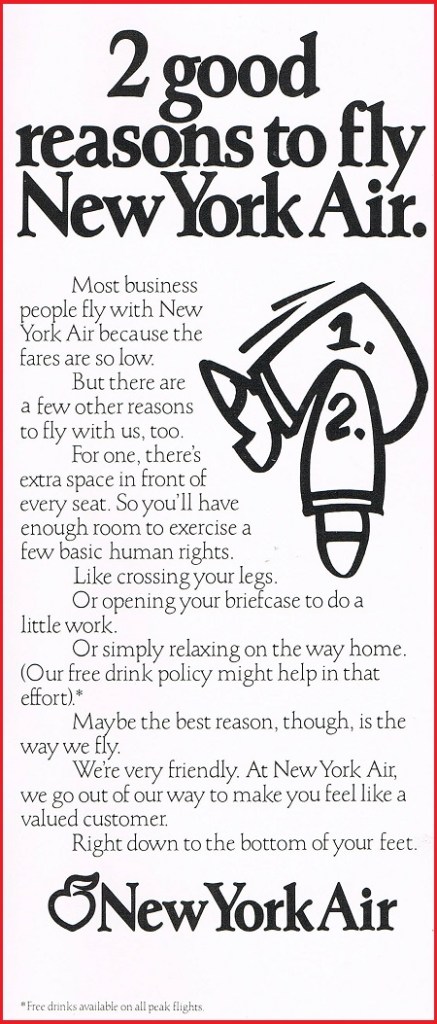 2 good
reasons to fly
New York Air.
Most business
people fly with New
York Air because the
fares are so low.
But there are
a few other reasons
to fly with us, too.
For one, there's
extra space in front of
every seat. So you'll have
enough room to exercise a
few basic human rights.
Like crossing your legs.
Or opening your briefcase to do a
little work.
Or simply relaxing on the way home.
(Our free drink policy might help in that
effort).*
Maybe the best reason, though, is the
way we fly.
We're very friendly. At New York Air,
we go out of our way to make you feel like a
valued customer.
Right down to the bottom of your feet.
1.
2.
New York Air
*Free drinks available on all peak flights.